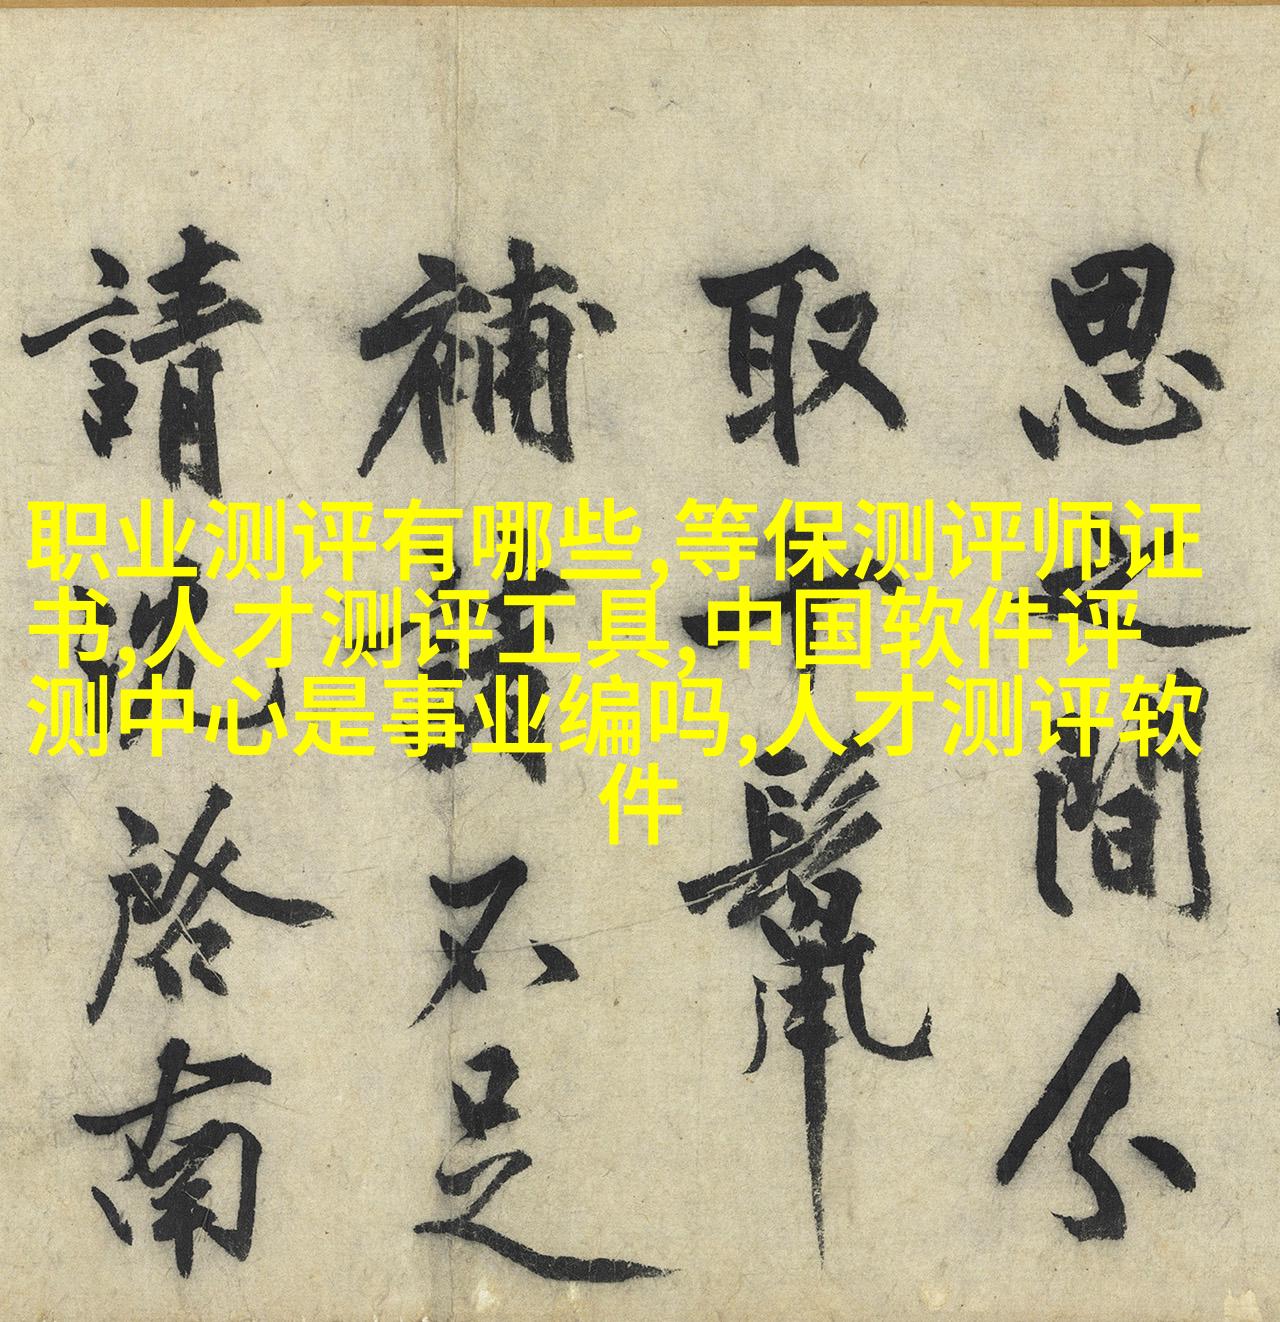 职业测评有哪些,等保测评师证
书,人才测评工具,中国软件评
测中心是事业编吗,人才测评软
件
思之間分
取十鬣
補諸不足
請沈启南